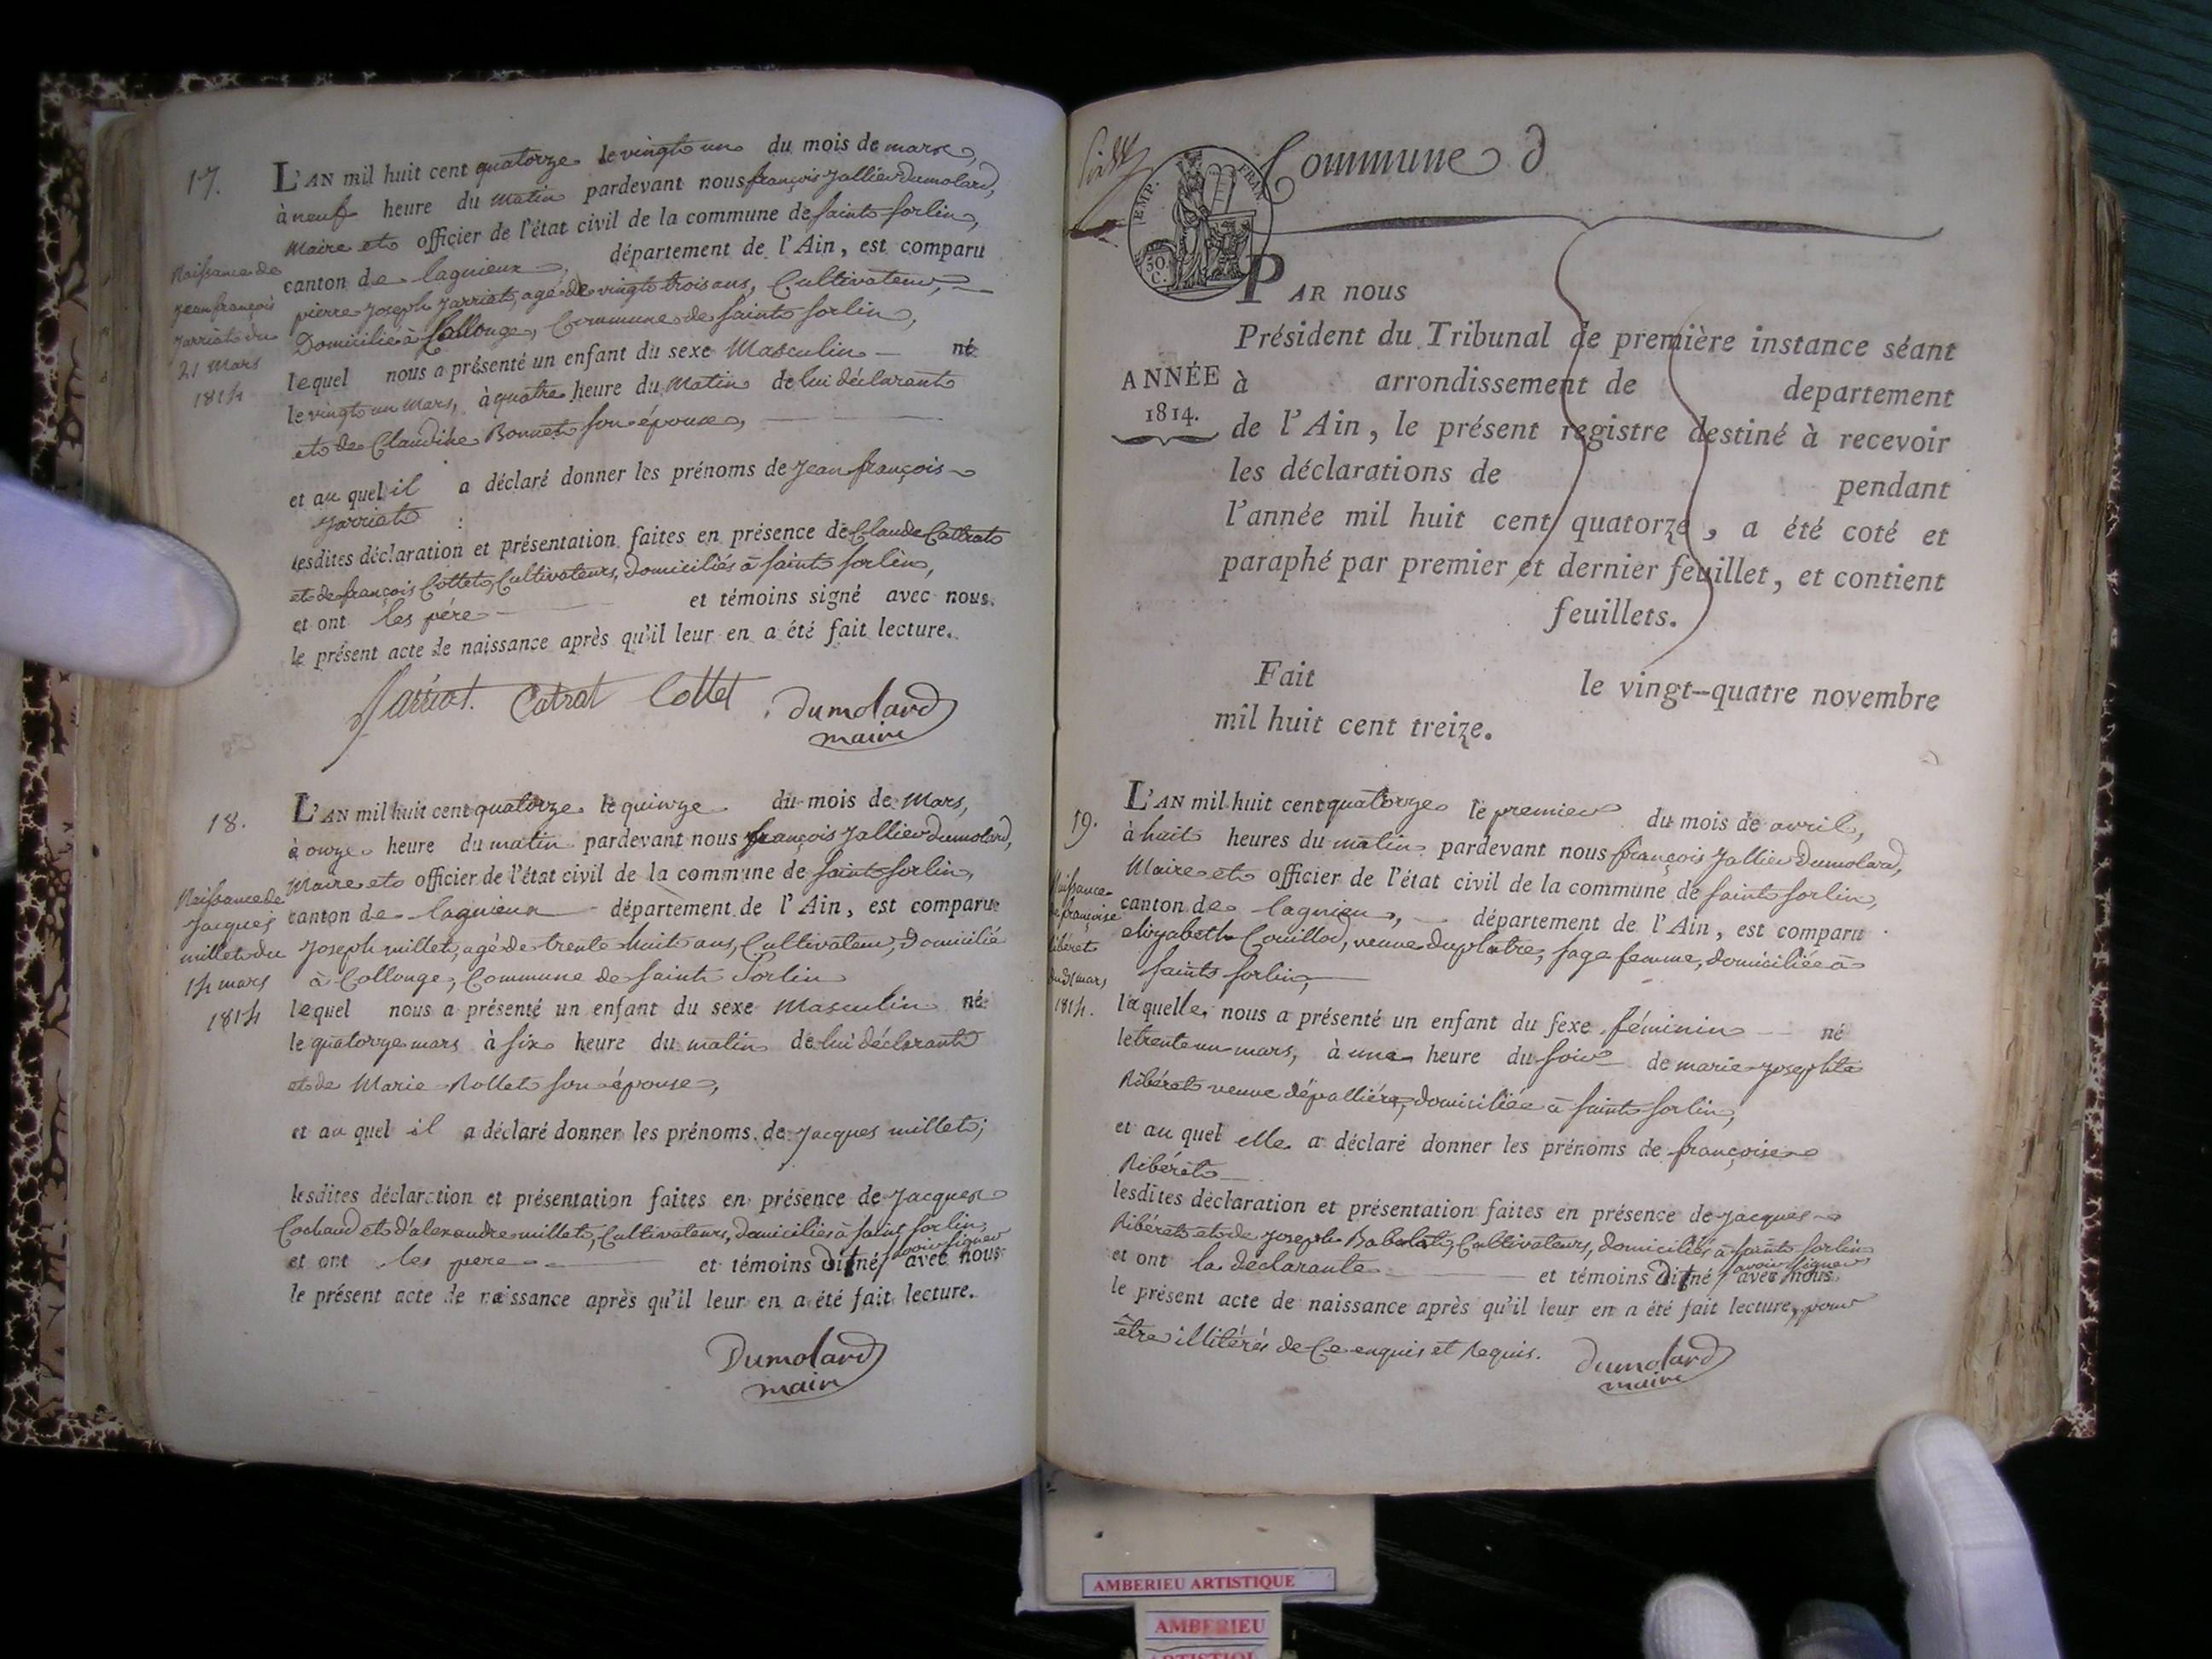 17.
L'AN mil huit cent quatorze le vingt un du mois de mars,
à neuf heure du matin pardevant nous françois Jallier Dumolard,
Maire et officier de l'état civil de la commune de saint sorlin,
canton de lagnieux département de l'Ain, est comparu
pierre Joseph Jarriat, agé de vingt trois ans, Cultivateur,
Domicilié à Collonge, Commune de saint sorlin,
lequel nous a présenté un enfant du sexe Masculin né
le vingt un Mars, à quatre heure du Matin de lui déclarant
et de Claudine Bonnet son épouse,
et au quel il a déclaré donner les prénoms de Jean françois
Jarriat
lesdites déclaration et présentation faites en présence de Claude Catrat
et de françois Cottet, Cultivateurs, domiciliés à saint sorlin,
et ont les pére et témoins signé avec nous.
le présent acte de naissance après qu'il leur en a été fait lecture.
Naissance de
jean françois
jarriat du
21 Mars
1814
Jarriat. Catrat Cottet Dumolard
maire
18.
L'AN mil huit cent quatorze le quinze du mois de Mars,
à onze heure du matin pardevant nous françois Jallier Dumolard,
Maire et officier de l'état civil de la commune de saint sorlin,
canton de lagnieux département de l'Ain, est comparu
Joseph millet, agé de trente huit ans, Cultivateur, Domicilié
à Collonge, Commune de saint Sorlin
lequel nous a présenté un enfant du sexe Masculin né
le quatorze mars à six heure du matin de lui déclarant
et de Marie Rollet son épouse,
et au quel il a déclaré donner les prénoms de Jacques millet;
lesdites déclaration et présentation faites en présence de Jacques
Cochaud et d'alexandre millet, Cultivateurs, domiciliés à saint sorlin,
et ont les pere et témoins Dit né savoir signer avec nous
le présent acte de naissance après qu'il leur en a été fait lecture.
Naissance de
Jacques
millet du
14 mars
1814
Dumolard
maire
Commune d
TEMP. FRAN
50.
C.
PAR nous
Président du Tribunal de première instance séant
à arrondissement de departement
de l'Ain, le présent registre destiné à recevoir
les déclarations de pendant
l'année mil huit cent quatorze, a été coté et
paraphé par premier et dernier feuillet, et contient
feuillets.
ANNÉE
1814.
Fait le vingt-quatre novembre
mil huit cent treize.
19.
L'AN mil huit cent quatorze le premier du mois de avril,
à huit heures du matin pardevant nous françois Jallier Dumolard,
Maire et officier de l'état civil de la commune de saint sorlin,
canton de lagnieu, département de l'Ain, est comparu
elizabeth Couillod, veuve duplatre, sage femme, domiciliée à
saint sorlin,
laquelle nous a présenté un enfant du sexe féminin né
le trente un mars, à une heure du soir de marie Josephte
Ribérat veuve dépalliére, domiciliée à saint sorlin,
et au quel elle a déclaré donner les prénoms de françoise
Ribérat
lesdites déclaration et présentation faites en présence de Jacques
Ribérat et de Joseph Babolat, Cultivateurs, domiciliés à saint sorlin
et ont la déclarante et témoins Dit né savoir signer avec nous
le présent acte de naissance après qu'il leur en a été fait lecture, pour
être illitérés de Ce enquis et Requis.
Naissance
de françoise
Ribérat
du 31 mars
1814.
Dumolard
maire
AMBERIEU ARTISTIQUE
AMBERIEU
ARTISTIQUE